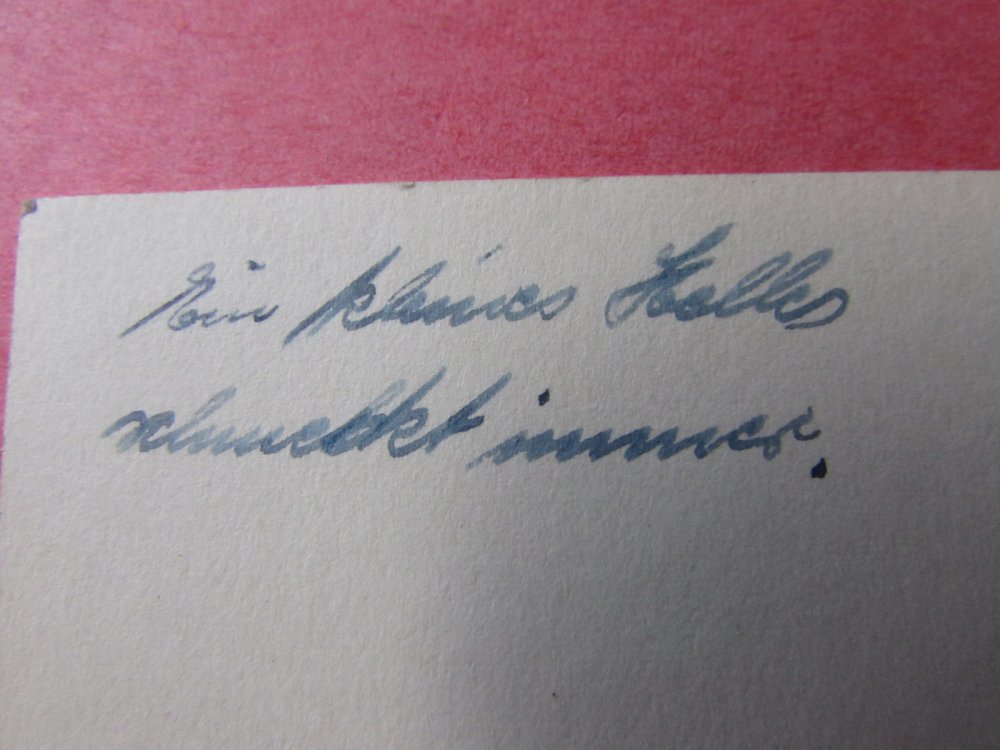 Ein kleines Helles
schmeckt immer.